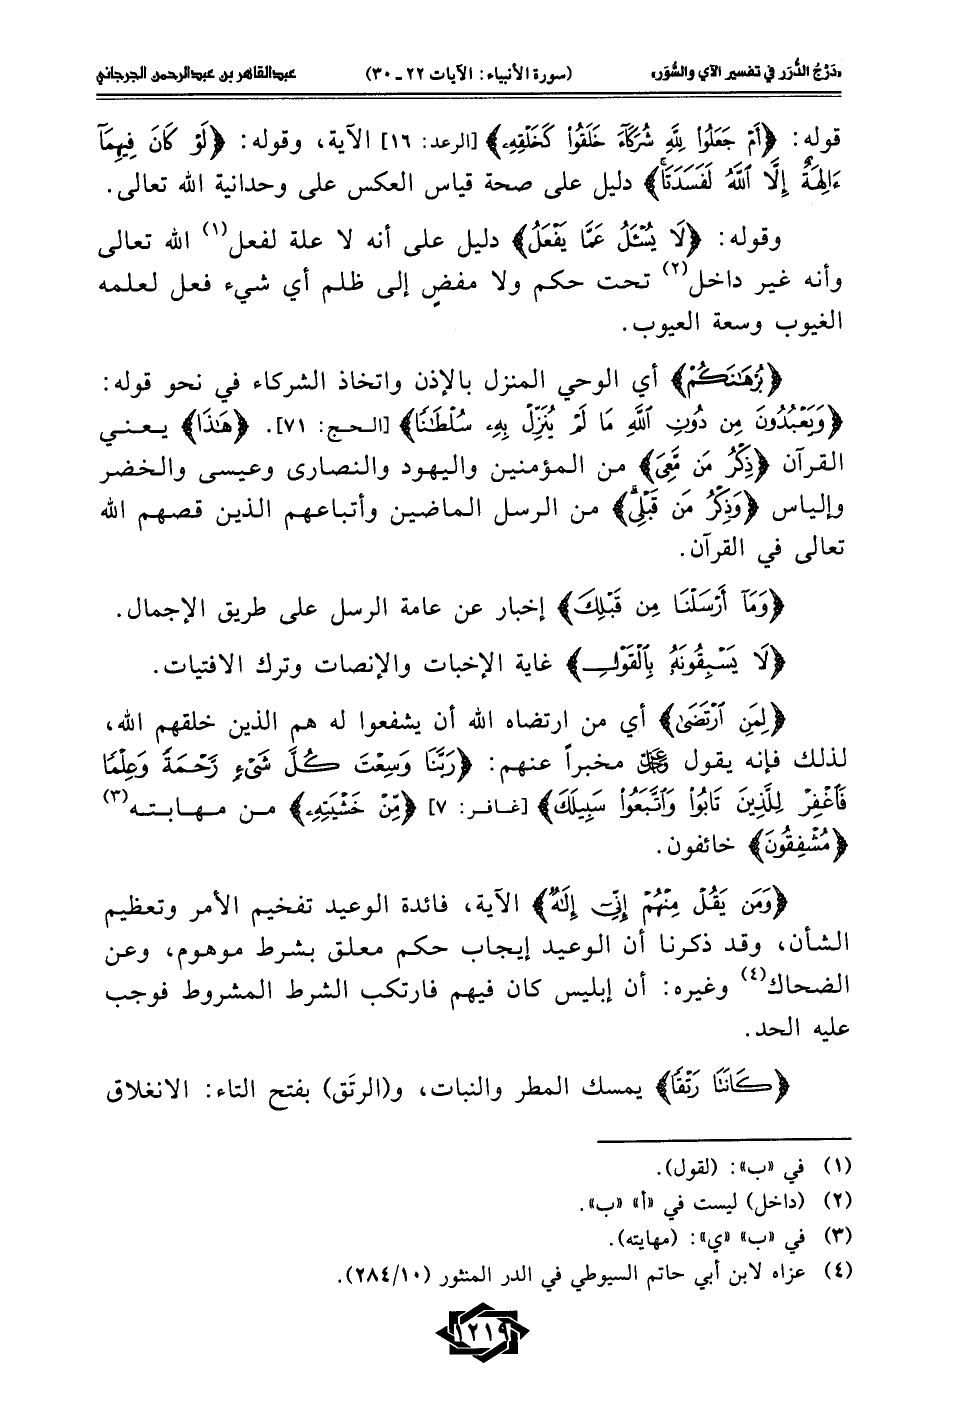 «دَرْجُ الدُّرَر في تفسير الآي والسُّوَر» (سورة الأنبياء: الآيات ٢٢ ـ ٣٠) عبدالقاهر بن عبدالرحمن الجرجاني
قوله: ﴿أَمْ جَعَلُوا۟ لِلَّهِ شُرَكَآءَ خَلَقُوا۟ كَخَلْقِهِۦ﴾ [الرعد: ١٦] الآية، وقوله: ﴿لَوْ كَانَ فِيهِمَآ
ءَالِهَةٌ إِلَّا ٱللَّهُ لَفَسَدَتَا﴾ دليل على صحة قياس العكس على وحدانية الله تعالى.
وقوله: ﴿لَا يُسْـَٔلُ عَمَّا يَفْعَلُ﴾ دليل على أنه لا علة لفعل(١) الله تعالى
وأنه غير داخل(٢) تحت حكم ولا مفضٍ إلى ظلم أي شيء فعل لعلمه
الغيوب وسعة العيوب.
﴿بُرْهَـٰنَكُمْ﴾ أي الوحي المنزل بالإذن واتخاذ الشركاء في نحو قوله:
﴿وَيَعْبُدُونَ مِن دُونِ ٱللَّهِ مَا لَمْ يُنَزِّلْ بِهِۦ سُلْطَـٰنًا﴾ [الحج: ٧١]. ﴿هَـٰذَا﴾ يعني
القرآن ﴿ذِكْرُ مَن مَّعِىَ﴾ من المؤمنين واليهود والنصارى وعيسى والخضر
وإلياس ﴿وَذِكْرُ مَن قَبْلِى﴾ من الرسل الماضين وأتباعهم الذين قصهم الله
تعالى في القرآن.
﴿وَمَآ أَرْسَلْنَا مِن قَبْلِكَ﴾ إخبار عن عامة الرسل على طريق الإجمال.
﴿لَا يَسْبِقُونَهُۥ بِٱلْقَوْلِ﴾ غاية الإخبات والإنصات وترك الافتيات.
﴿لِمَنِ ٱرْتَضَىٰ﴾ أي من ارتضاه الله أن يشفعوا له هم الذين خلقهم الله،
لذلك فإنه يقول ﷺ مخبراً عنهم: ﴿رَبَّنَا وَسِعْتَ كُلَّ شَىْءٍ رَّحْمَةً وَعِلْمًا
فَٱغْفِرْ لِلَّذِينَ تَابُوا۟ وَٱتَّبَعُوا۟ سَبِيلَكَ﴾ [غافر: ٧] ﴿مِّنْ خَشْيَتِهِۦ﴾ من مهابته(٣)
﴿مُشْفِقُونَ﴾ خائفون.
﴿وَمَن يَقُلْ مِنْهُمْ إِنِّىٓ إِلَـٰهٌ﴾ الآية، فائدة الوعيد تفخيم الأمر وتعظيم
الشأن، وقد ذكرنا أن الوعيد إيجاب حكم معلق بشرط موهوم، وعن
الضحاك(٤) وغيره: أن إبليس كان فيهم فارتكب الشرط المشروط فوجب
عليه الحد.
﴿كَانَتَا رَتْقًا﴾ يمسك المطر والنبات، و(الرتَق) بفتح التاء: الانغلاق
(١) في «ب»: (لقول).
(٢) (داخل) ليست في «أ» «ب».
(٣) في «ب» «ي»: (مهايته).
(٤) عزاه لابن أبي حاتم السيوطي في الدر المنثور (٢٨٤/١٠).
١٢١٩